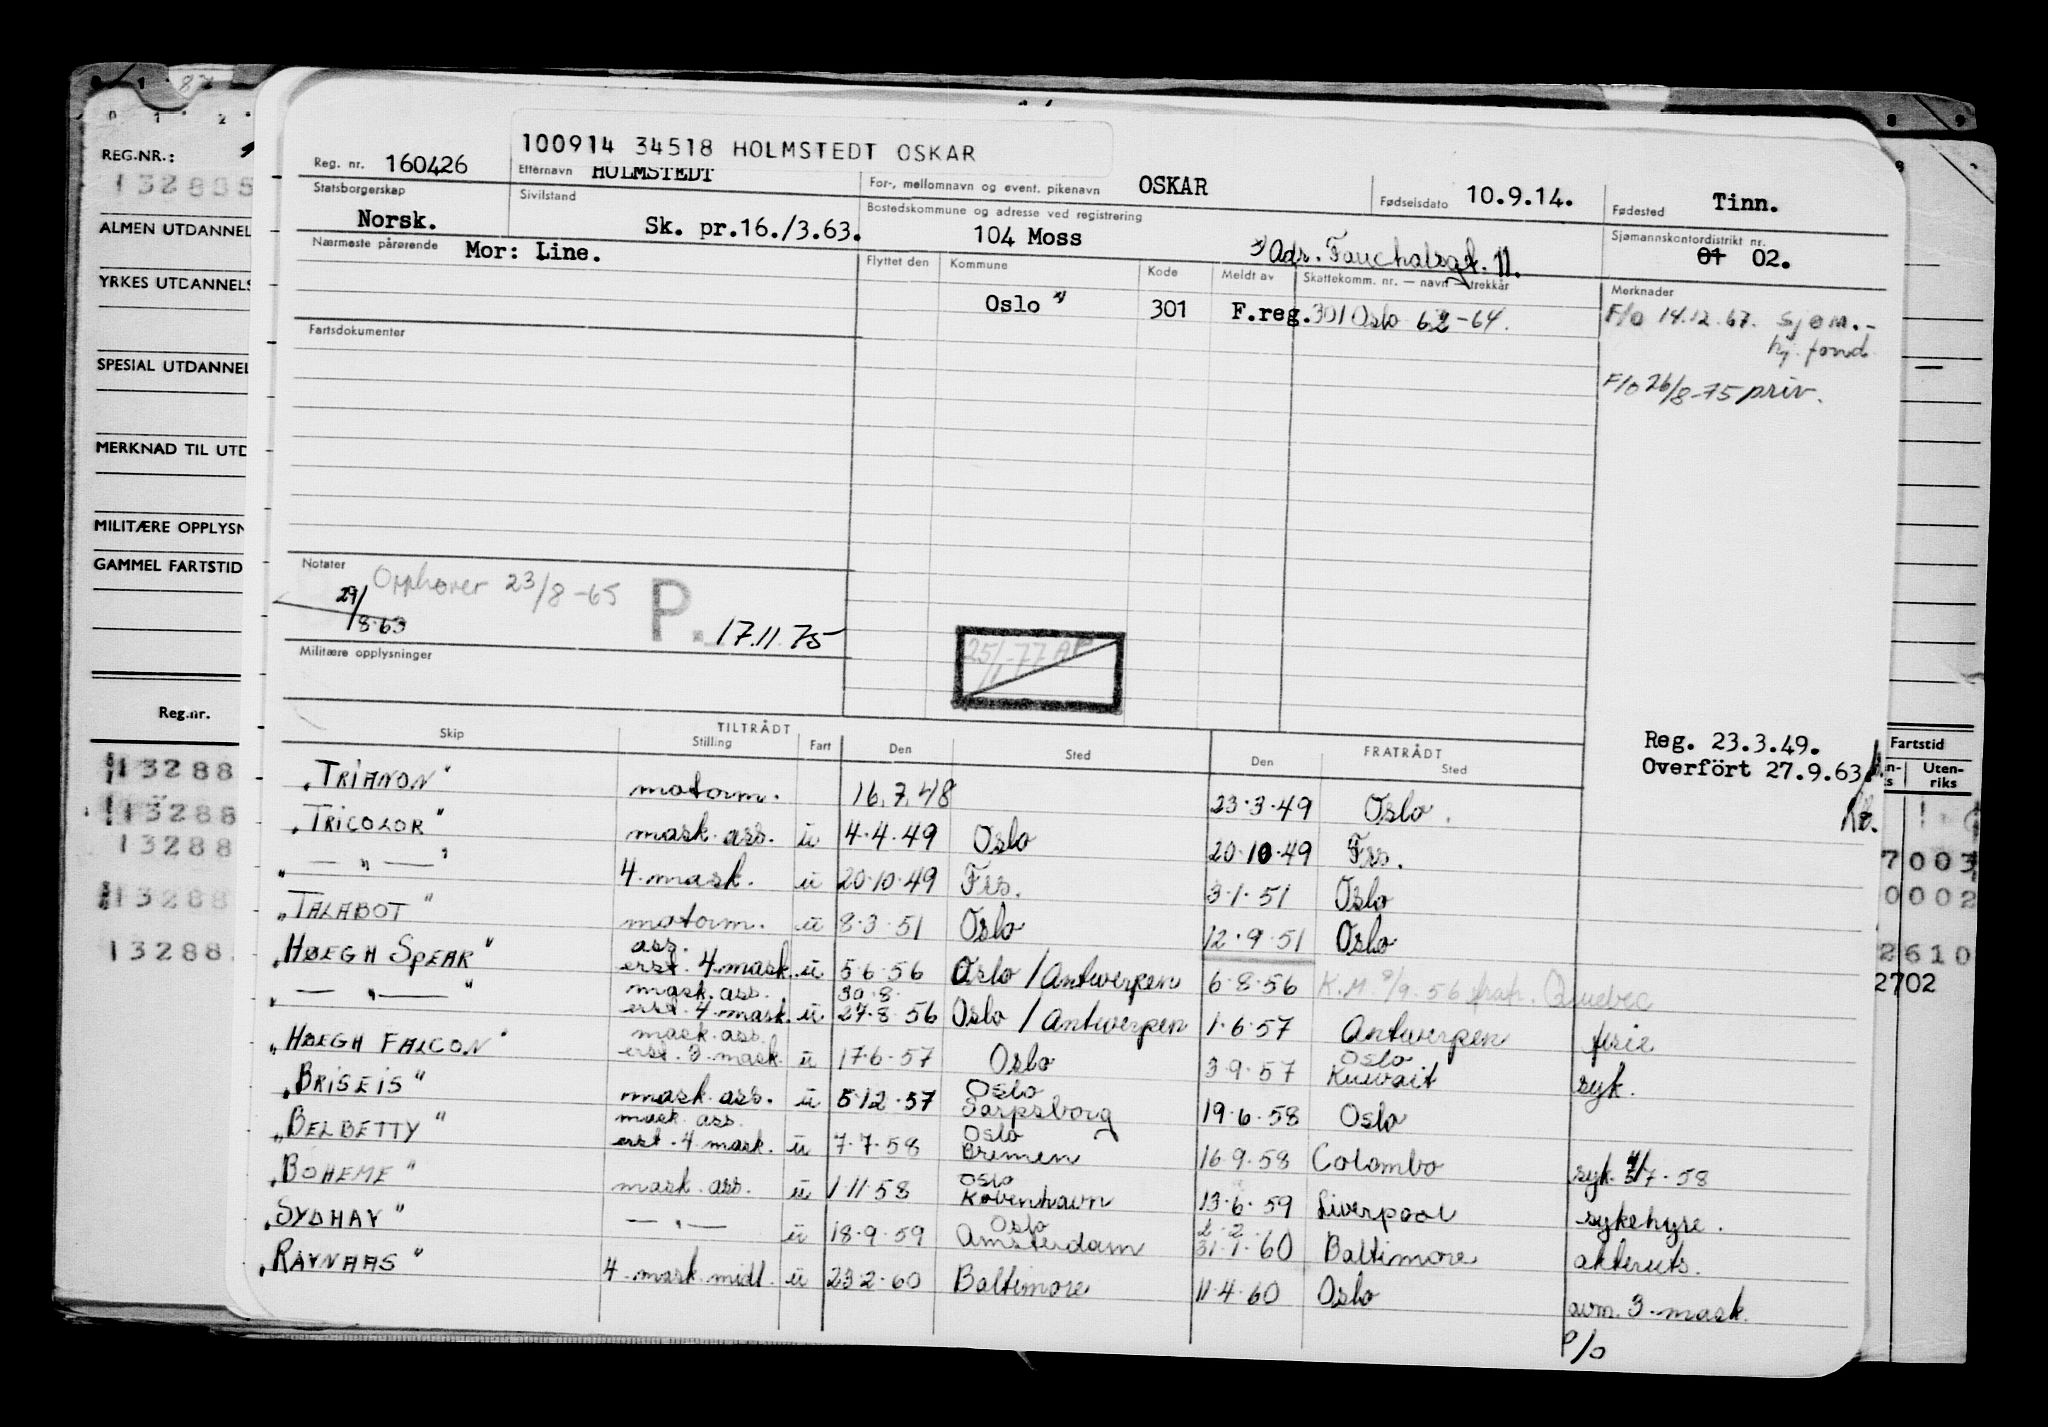 100914 34518 HOLMSTEDT OSKAR
Reg. nr. 160426
Etternavn HOLMSTEDT
For-, mellomnavn og event. pikenavn OSKAR
Fødselsdato 10.9.14.
Fødested Tinn.
Statsborgerskap Norsk.
Sivilstand Sk. pr.16./3.63.
Bostedskommune og adresse ved registrering 104 Moss
x) Adr. Fauchalsgt. 11.
Sjømannskontordistrikt nr. 01 02.
Nærmeste pårørende Mor: Line.
Flyttet den Kommune Kode Meldt av Skattekomm. nr. — navn — trekkår
Oslo x) 301 F.reg. 301 Oslo 62-64.
Merknader
F/o 14.12.67. sjøm.-
hj. fond
F/o 26/8-75 priv.
Fartsdokumenter
Notater
Opphører 23/8-65
29/8.63
P. 17.11.75
25/1-77
Militære opplysninger
Reg. 23.3.49.
Overfört 27.9.63
TILTRÅDT FRATRÅDT
Skip Stilling Fart Den Sted Den Sted
"TRIANON" motorm. 16.7.48 23.3.49 Oslo.
"TRICOLOR" mask. ass. u 4.4.49 Oslo 20.10.49 Frs.
" — " — " 4. mask. u 20.10.49 Frs. 3.1.51 Oslo
"TALABOT" motorm. u 8.3.51 Oslo 12.9.51 Oslo
ass.
"HØEGH SPEAR" erst. 4 mask. u 5.6.56 Oslo / Antwerpen 6.8.56 K.M. 9/9.56 Quebec
mask. ass. 30.8.
" — " — " erst. 4. mask. u 27.8.56 Oslo / Antwerpen 1.6.57 Antwerpen ferie
mask. ass. Oslo
"HØEGH FALCON" erst. 3. mask u 17.6.57 Oslo 3.9.57 Kuwait syk.
Oslo
"BRISEIS" mask. ass. u 5.12.57 Sarpsborg 19.6.58 Oslo
mask. ass. Oslo
"BELBETTY" erst. 4 mask. u 7.7.58 Bremen 16.9.58 Colombo syk. 7.58
Oslo
"BOHEME" mask. ass. u 1.11.58 København 13.6.59 Liverpool sykehyre.
Oslo 2.2.
"SYDHAV" — " — u 18.9.59 Amsterdam 31.1.60 Baltimore akteruts.
"RAVNAAS" 4. mask. midl. u 23.2.60 Baltimore 11.4.60 Oslo avm. 3. mask.
P/o
REG.NR.:
ALMEN UTDANNEL
YRKES UTDANNELS
SPESIAL UTDANNEL
MERKNAD TIL UTD
MILITÆRE OPPLYSN
GAMMEL FARTSTID
Reg.nr.
13288
13288
13288
13288
13288
Fartstid
Uten-
riks
7003
0002
2610
2702